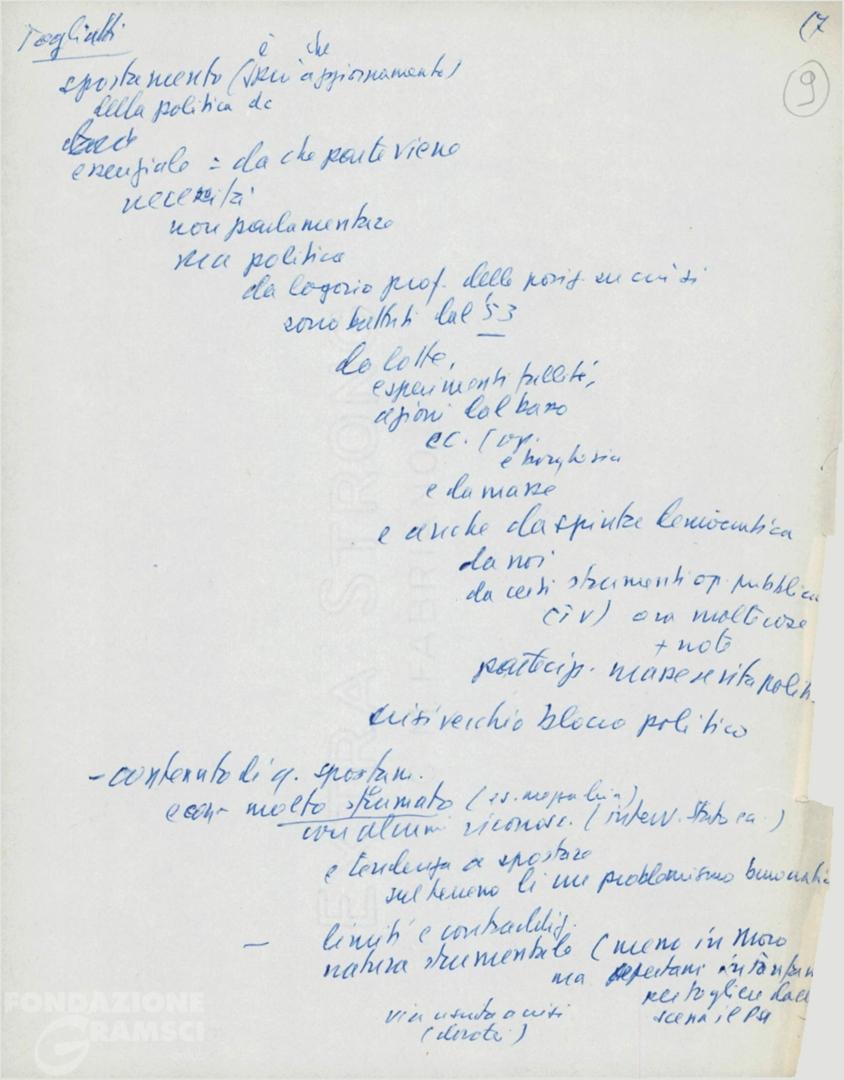 Togliatti
17
9
è che
spostamento (più aggiornamento)
della politica dc
essenziale = da che parte viene
necessità
non parlamentare
ma politica
da logorio prof. delle posiz. su cui si
sono battuti dal '53
da lotte,
esperimenti falliti,
azioni dal basso
ec. (op.
e borghesia
e da masse
e anche da spinta democratica
da noi
da certi strumenti op. pubblica
(TV) ora molte cose
+ note
partecip. masse se vita polit.
crisi vecchio blocco politico
- contenuto di q. spostam.
econ. molto sfumato (es. mezzadria)
con alcuni riconosc. (interv. Stato ec.)
e tendenza a spostare
sul terreno di un problemismo
- limiti e contraddiz.
natura strumentale (meno in Moro
ma in Fanfan
per togliere dalla
scena il PSI
via uscita a crisi
(destra)
EXTRA STRONG
FABRIANO
FONDAZIONE
GRAMSCI